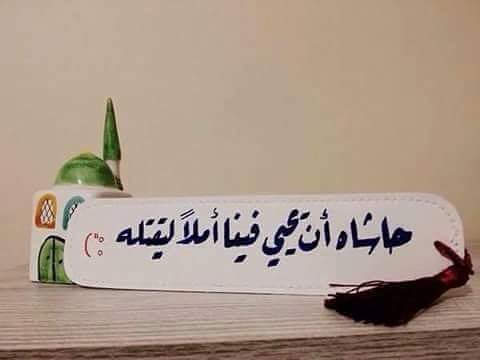 حاشاه أن يحيي فينا أملاً ليقتله